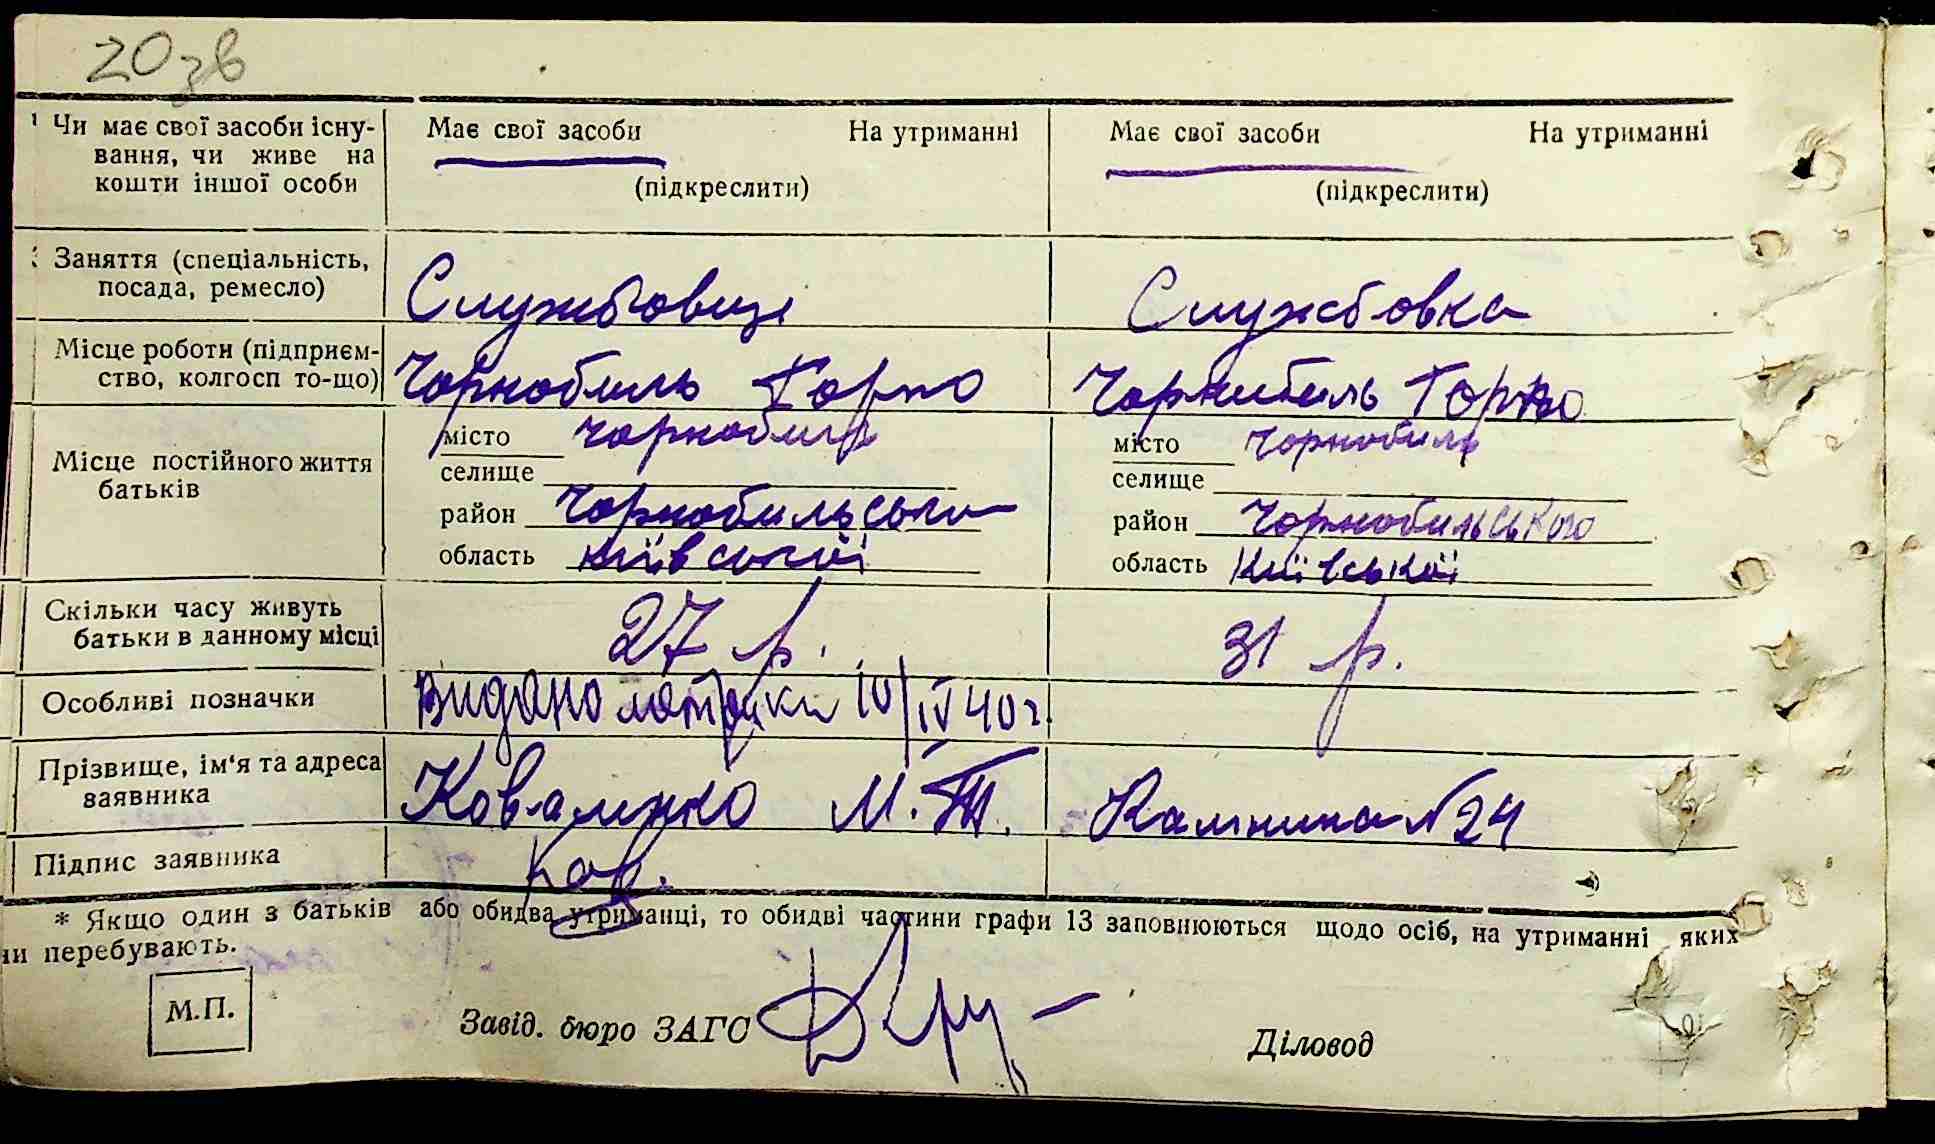 20 зв
Чи має свої засоби існу- Має свої засоби На утриманні Має свої засоби На утриманні
вання, чи живе на
кошти іншої особи (підкреслити) (підкреслити)
Заняття (спеціальність,
посада, ремесло) Службовиц Службовка
Місце роботи (підприєм-
ство, колгосп то-що) Чорнобиль Торг Чорнобиль Торг
місто Чорнобиль місто Чорнобиль
Місце постійного життя
батьків
селище селище
район Чорнобильського район Чорнобильського
область Київської область Київської
Скільки часу живуть
батьки в данному місці 27 р. 31 р.
Особливі позначки Видано 10/IV 40 г.
Прізвище, ім'я та адреса
заявника Коваленко М. Т. Калініна № 24
Підпис заявника Ков.
* Якщо один з батьків або обидва утриманці, то обидві частини графи 13 заповнюються щодо осіб, на утриманні яких
ни перебувають.
М.П.
Завід. бюро ЗАГС Діловод